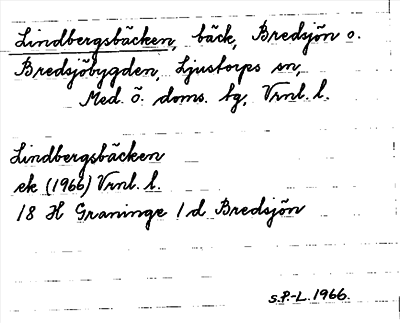 Lindbergsbäcken, bäck, Bredsjön o.
Bredsjöbygden, Ljustorps sn,
Med. ö. doms. tg, Vrnl. l.
Lindbergsbäcken
ek (1966) Vrnl. l.
18 H Graninge 1 d Bredsjön
S.P.-L. 1966.